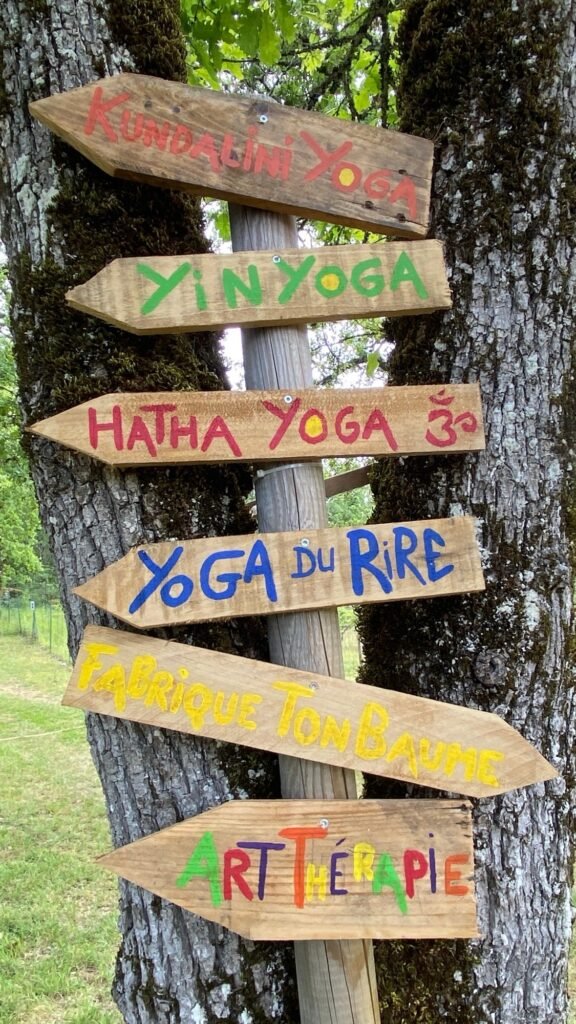 KUNDALINI YOGA
YiN YOGA
HATHA YOGA ॐ
YOGA DU RiRE
FABRIQUE TON BAUME
ART THÉRAPiE